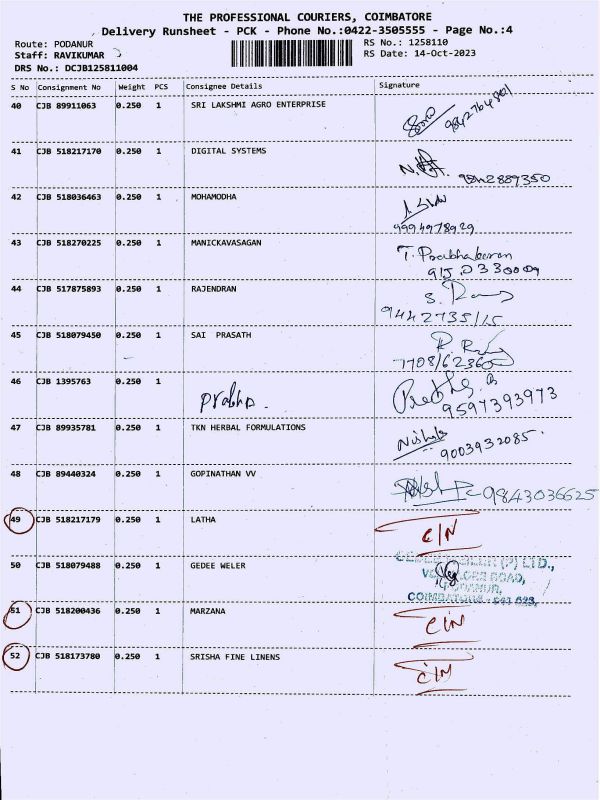 THE PROFESSIONAL COURIERS, COIMBATORE
Delivery Runsheet - PCK - Phone No.:0422-3505555 - Page No.:4
Route: PODANUR
RS No.: 1258110
Staff: RAVIKUMAR
RS Date: 14-Oct-2023
DRS No.: DCJB125811004
S No Consignment No Weight PCS Consignee Details Signature
40 CJB 89911063 0.250 1 SRI LAKSHMI AGRO ENTERPRISE
41 CJB 518217170 0.250 1 DIGITAL SYSTEMS
9842889350
42 CJB 518036463 0.250 1 MOHAMODHA
9994978929
43 CJB 518270225 0.250 1 MANICKAVASAGAN T. Prabhakaran
44 CJB 517875893 0.250 1 RAJENDRAN
9442735115
45 CJB 518079450 0.250 1 SAI PRASATH
46 CJB 1395763 0.250 1 Prabha.
9597393973
47 CJB 89935781 0.250 1 TKN HERBAL FORMULATIONS
9003932085.
48 CJB 89440324 0.250 1 GOPINATHAN VV 9843036625
49 CJB 518217179 0.250 1 LATHA C/N
50 CJB 518079488 0.250 1 GEDEE WELER
51 CJB 518200436 0.250 1 MARZANA C/N
52 CJB 518173780 0.250 1 SRISHA FINE LINENS C/N